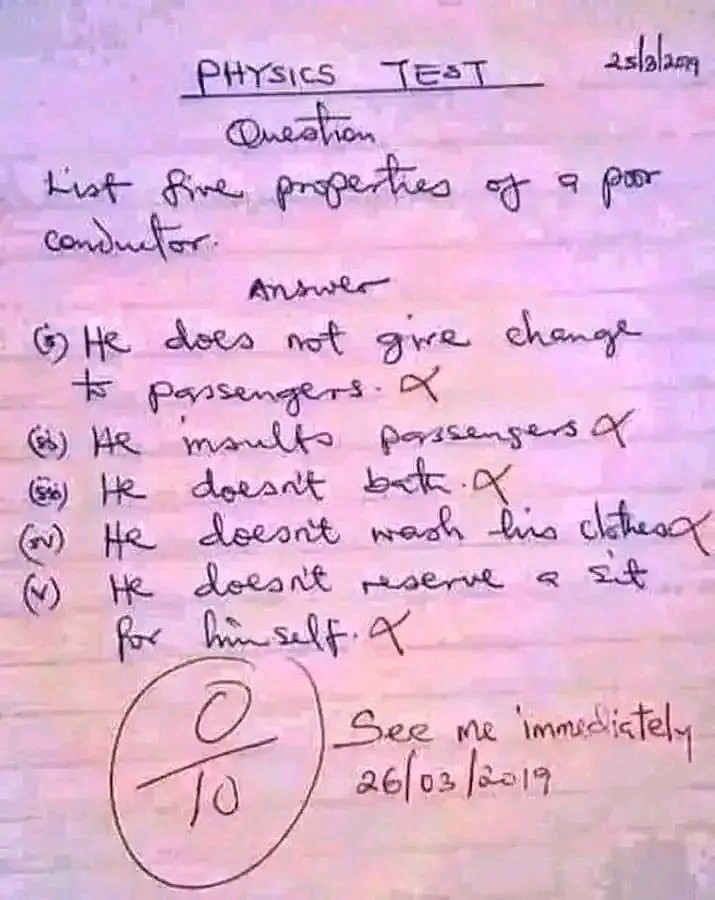 PHYSICS TEST 25/3/2019
Question
List five properties of a poor
conductor.
Answer
(i) He does not give change
to passengers. X
(ii) He insults passengers X
(iii) He doesn't bath. X
(iv) He doesn't wash his clothes X
(v) He doesn't reserve a sit
for himself. X
0
10
See me immediately
26/03/2019